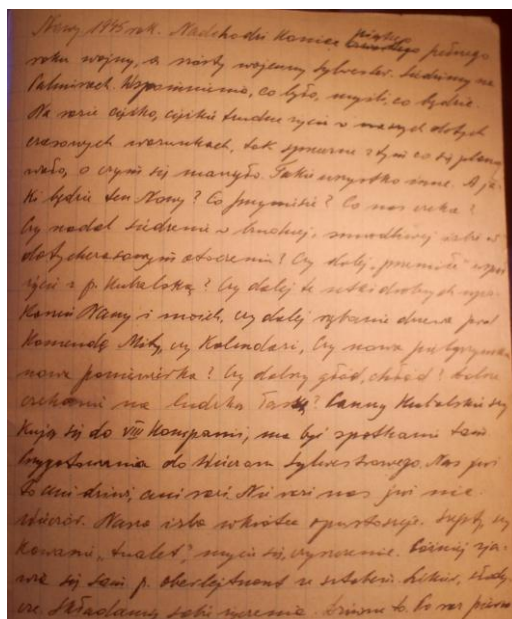 Nowy 1945 rok. Nadchodzi koniec piątego pełnego
roku wojny, a szósty wojenny sylwester. Siedzimy na
Palmirach. Wspominamy, co było, myśli, co będzie.
Na razie ciężko, ciężkie trudne życie w naszych dotych
czasowych warunkach, tak sprzeczne z tym co się plano
wało, o czym się marzyło. Takie wszystko inne. A ja-
ki będzie ten Nowy? Co przyniesie? Co nas czeka?
Czy nadal siedzenie w brudnej, smrodliwej izbie w
dotychczasowym otoczeniu? Czy dalej "przemiłe" współ
życie z p. Kubalską? Czy dalej te setki drobnych upo-
korzeń Nany i moich, czy dalej rąbanie drzewa pod
Komendą Mity, czy Kalendari, Czy nowa
nowa poniewierka? Czy dalszy głód, chłód? dalsze
czekanie na ludzką łaskę? Panny Kubalskie szy
kują się do VIII Kompanii, ma być spotkanie tam.
Przygotowania do wieczoru Sylwestrowego. Nas już
to ani dziwi, ani razi. Nie razi nas już nic.
Wieczór. Nasza izba wkrótce opustoszeje. Szepty, szy
kowanie "tualet", mycie się, czyszczenie. Później zja-
wia się sam p. oberlejtnant ze sztabem. Likier, słody
cze. Składamy sobie życzenia. Dziwne to. Po raz pierw